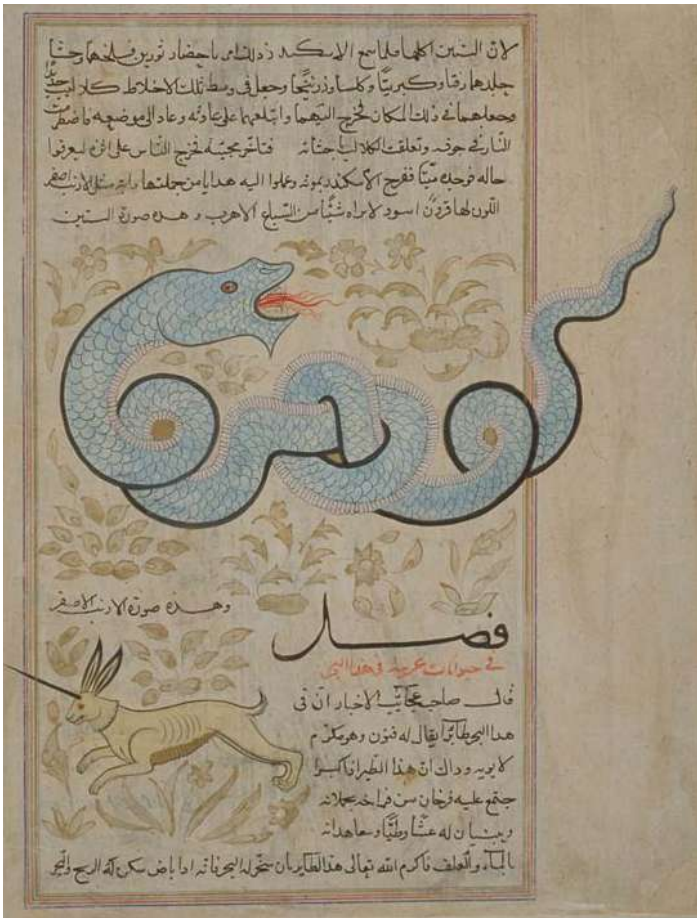 لان التنين اكلها فلما سمع الاسكندر ذلك امر باحضار ثورين فسلخهما وحشا
جلدهما زفتا وكبريتا وكلسا وزرنيخا وجعل في وسط تلك الاخلاط كلاليب حديد
وجعلهما في ذلك المكان فخرج التنين اليهما وابتلعهما على عادته وعاد الى موضعه فاضطرمت
النار في جوفه وتعلقت الكلاليب باحشائه فتاخر مجيئه فخرج الناس على اثره ليعرفوا
حاله فوجده ميتا ففرح الاسكندر بموته وحملوا اليه هدايا من جملتها دابة مثل الارنب اصفر
اللون لها قرن اسود لا يراه شيئا من السباع الا هرب وهذه صورة التنين
وهذه صورة الارنب الاصفر
فصل
في حيوانات غريبة في هذا البحر
قال صاحب عجايب الاخبار ان في
هذا البحر طائرا يقال له فنون وهو مكرم
لابويه وذاك ان هذا الطير اذا كبر
اجتمع عليه فرخان من فراخه يحملانه
ويبنيان له عشا وطيا ويتعاهدانه
بالماء والعلف فاكرم الله تعالى هذا الطاير بان سخر له البحر فانه اذا باض سكن له الريح والبحر